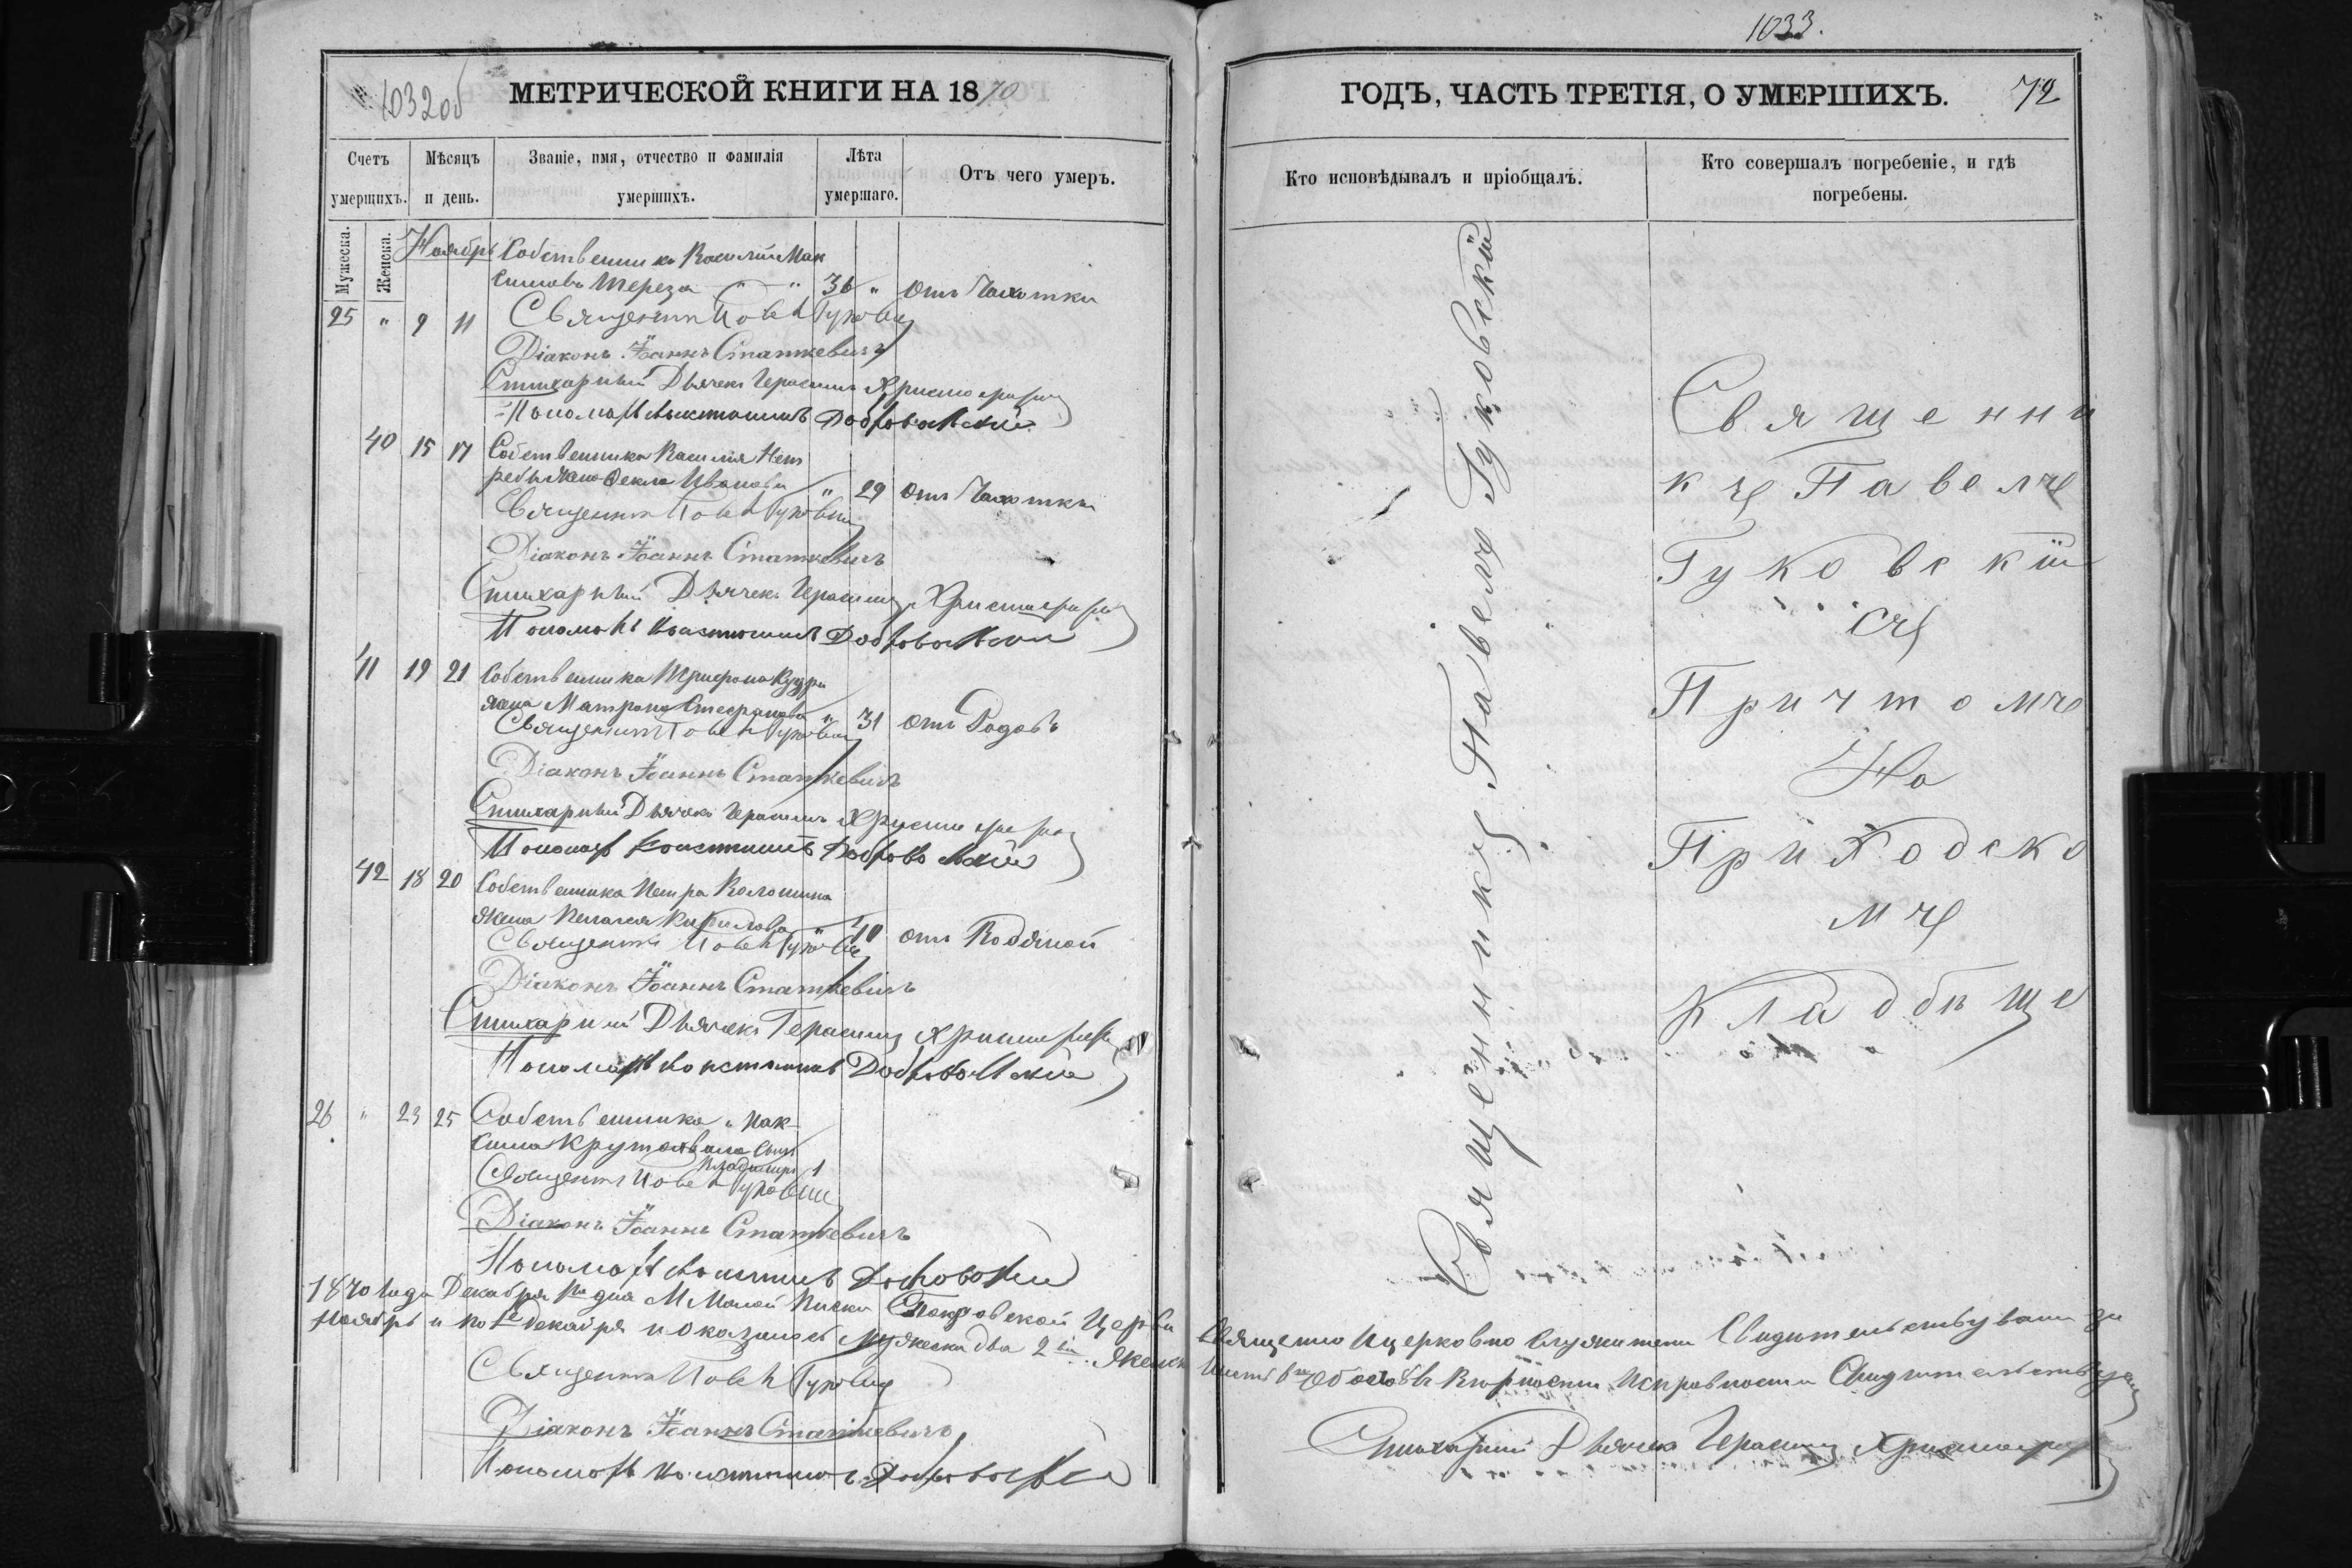 1032об
МЕТРИЧЕСКОЙ КНИГИ НА 1870
Счетъ умершихъ.
Мѣсяцъ и день.
Званіе, имя, отчество и фамилія умершихъ.
Лѣта умершаго.
Отъ чего умеръ.
Мужеска.
Женска.
Ноябрь
Собственникъ Василій Мак
симовъ Тереза " " 36 " Отъ Чахотки
25 " 9 11 Священникъ Павелъ Гуковскій
Діаконъ Іоаннъ Статкевичъ
Стихарный Дьячекъ Герасимъ Христофоръ
Пономарь Константинъ Добровольскій
40 15 17 Собственника Василія Нет
ребы жена Ѳекла Иванова " 29 Отъ Чахотки
Священникъ Павелъ Гуковскій
Діаконъ Іоаннъ Статкевичъ
Стихарный Дьячекъ Герасимъ Христофоръ
Пономарь Константинъ Добровольскій
41 19 21 Собственника Трифона Кудри
жена Матрона Стефанова " 31 Отъ Родовъ
Священникъ Павелъ Гуковскій
Діаконъ Іоаннъ Статкевичъ
Стихарный Дьячекъ Герасимъ Христофоръ
Пономарь Константинъ Добровольскій
42 18 20 Собственника Петра Коломийца
жена Пелагея Кирилова " 40 отъ Водяной
Священникъ Павелъ Гуковскій
Діаконъ Іоаннъ Статкевичъ
Стихарный Дьячекъ Герасимъ Христофоръ
Пономарь Константинъ Добровольскій
26 " 23 25 Собственника Мак-
сима сынъ
Владимиръ 1
Священникъ Павелъ Гуковскій
Діаконъ Іоаннъ Статкевичъ
Пономарь Константинъ Добровольскій
1870 Года Декабря дня М Малой Покровской Церкви
Ноябрь и по Декабря и оказалось мужеска два 2 женск
Священникъ Павелъ Гуковскій
Діаконъ Іоаннъ Статкевичъ
Пономарь Константинъ Добровольскій
1033.
ГОДЪ, ЧАСТЬ ТРЕТІЯ, О УМЕРШИХЪ. 72
Кто исповѣдывалъ и пріобщалъ.
Кто совершалъ погребеніе, и гдѣ погребены.
Священникъ Павелъ Гуковскій
Священни
къ Павелъ
Гуковскій
съ
Причтомъ
На
Приходско
мъ
Кладбище
Священно и церковно служители Свидѣтельствовали за
вѣрности Исправности Свидѣтельствуемъ
Стихарный Дьячекъ Герасимъ Христофоръ